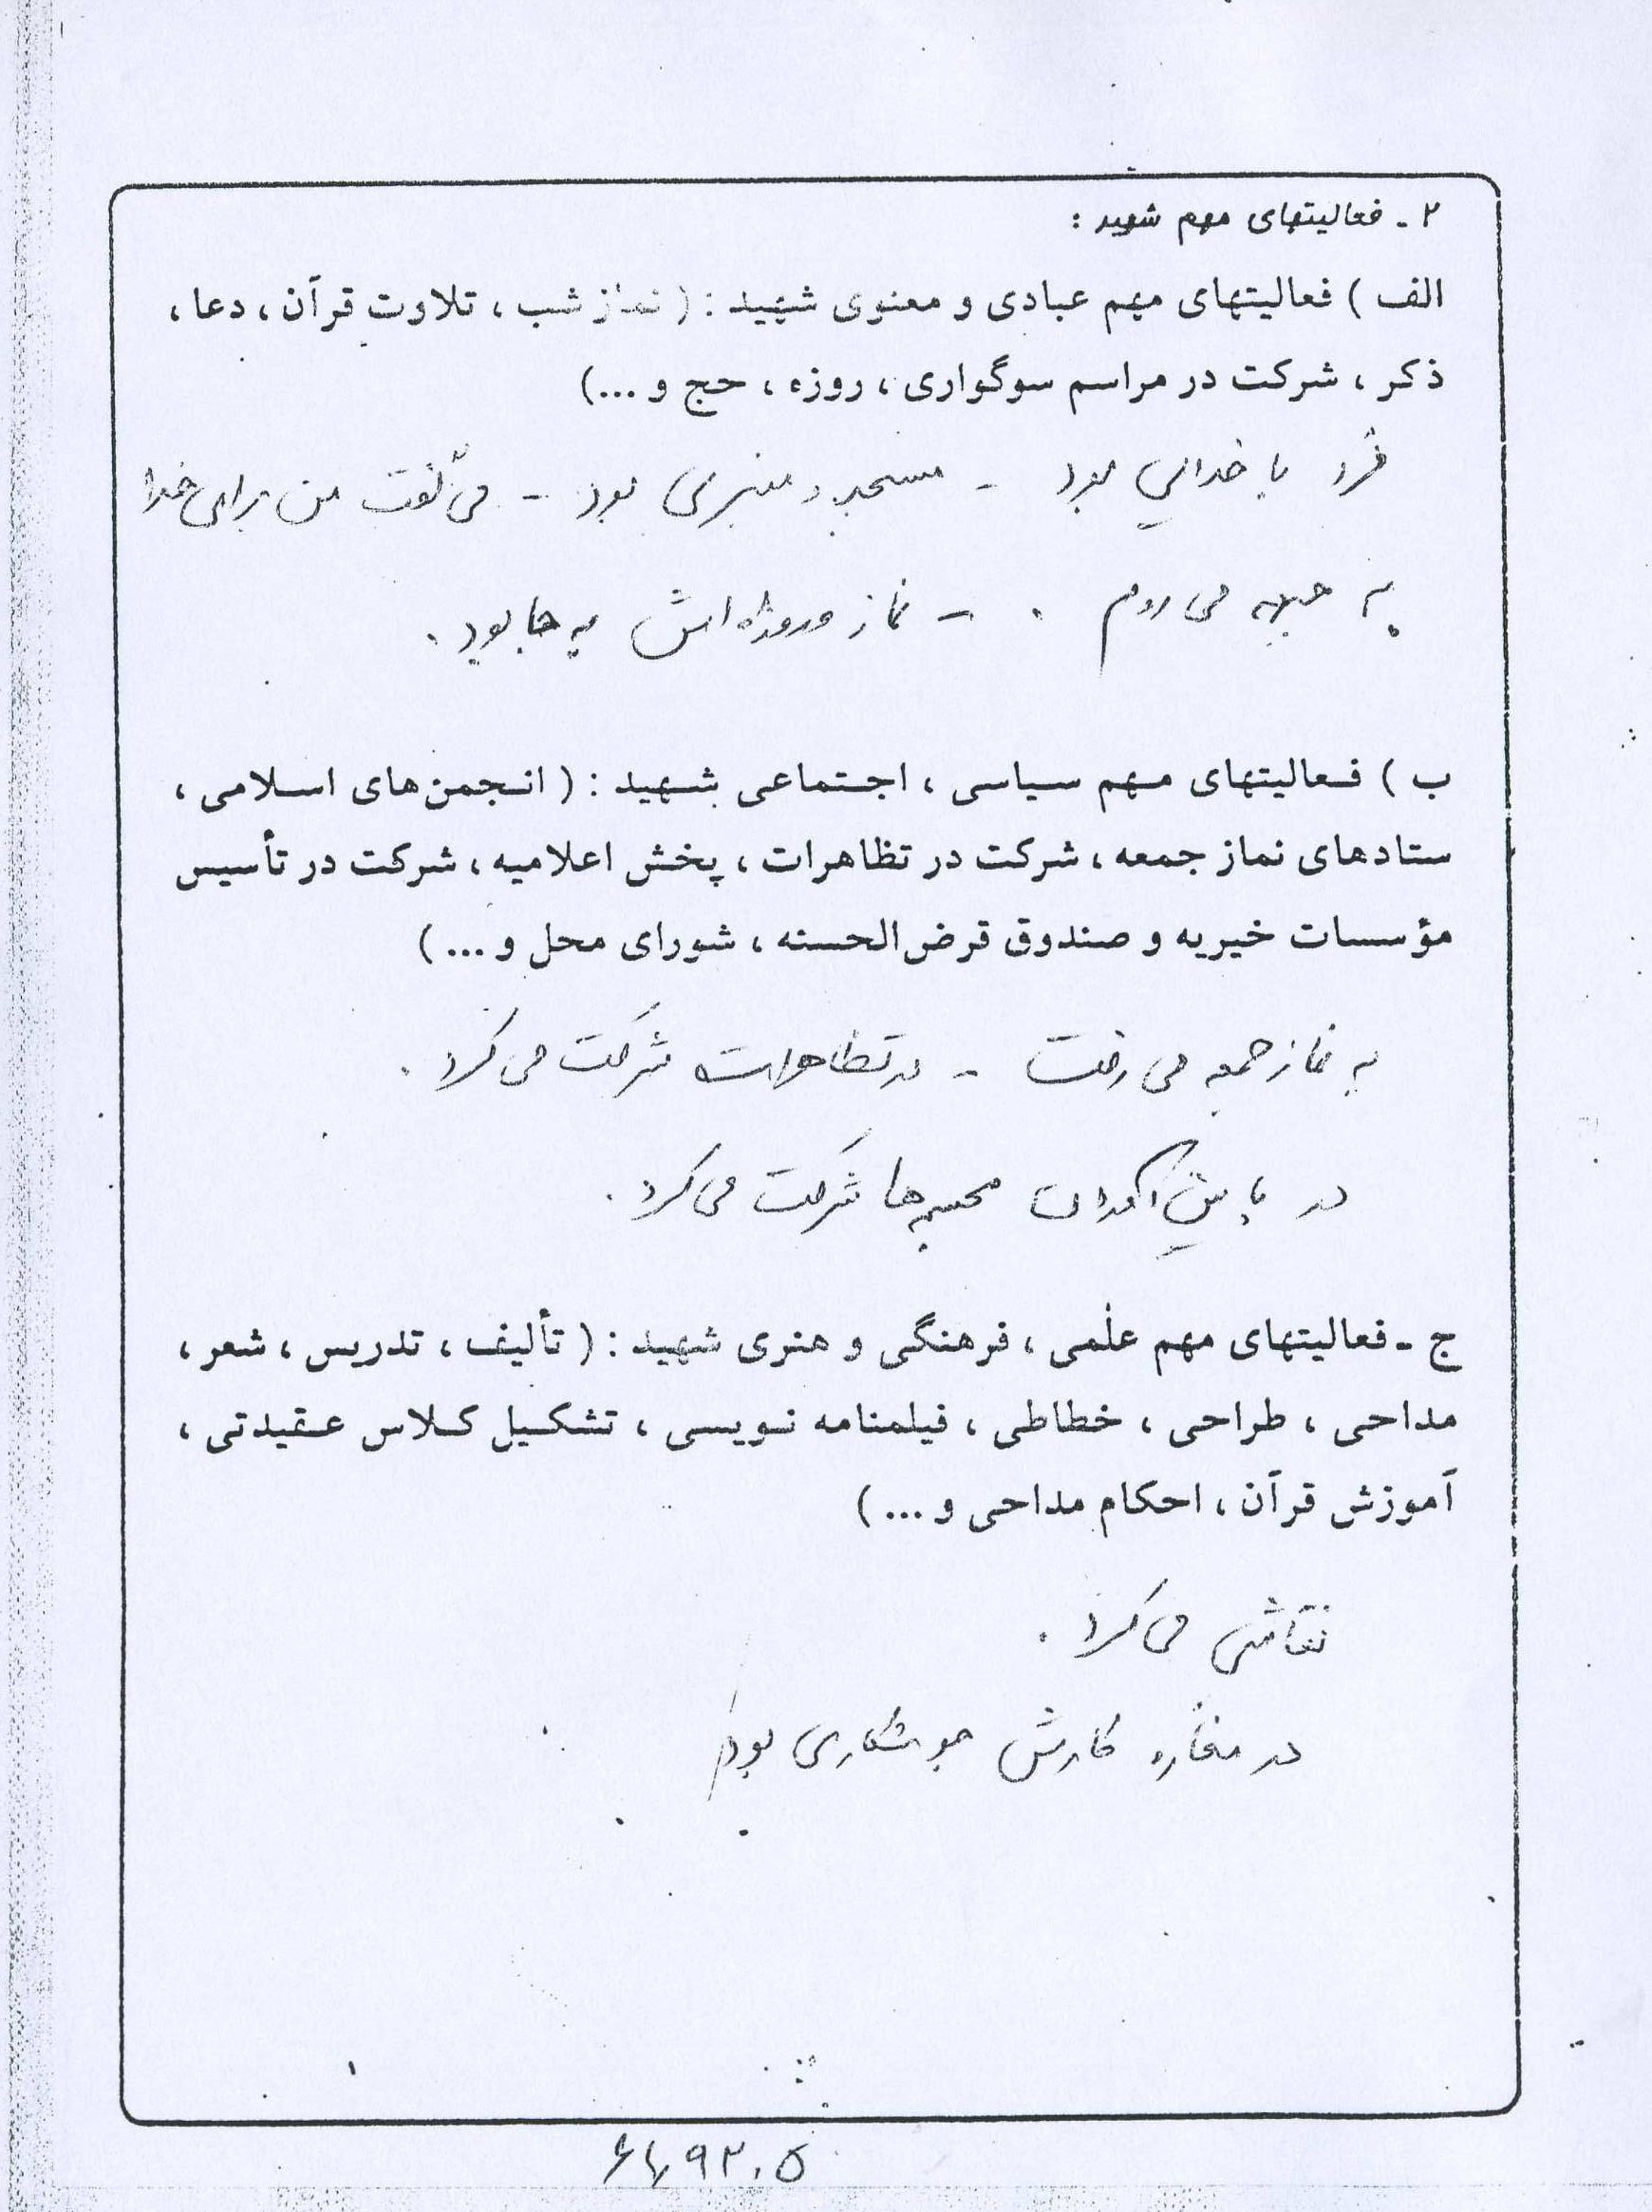 ۲ ـ فعالیتهای مهم شهید :
الف ) فعالیتهای مهم عبادی و معنوی شهید : ( نماز شب ، تلاوت قرآن ، دعا ،
ذکر ، شرکت در مراسم سوگواری ، روزه ، حج و ...)
فرد با خدایی بود - مسجد و منبری بود - می گفت من برای خدا
به جبهه می روم . - نماز و روزه اش به جا بود .
ب ) فعالیتهای مهم سیاسی ، اجتماعی شهید : ( انجمن‌های اسلامی ،
ستادهای نماز جمعه ، شرکت در تظاهرات ، پخش اعلامیه ، شرکت در تأسیس
مؤسسات خیریه و صندوق قرض‌الحسنه ، شورای محل و ... )
به نماز جمعه می رفت - در تظاهرات شرکت می کرد .
در پایین آوردن مجسمه ها شرکت می کرد .
ج ـ فعالیتهای مهم علمی ، فرهنگی و هنری شهید : ( تألیف ، تدریس ، شعر ،
مداحی ، طراحی ، خطاطی ، فیلمنامه نویسی ، تشکیل کلاس عقیدتی ،
آموزش قرآن ، احکام مداحی و ... )
نقاشی می کرد .
در مغازه کارش جوشکاری بود